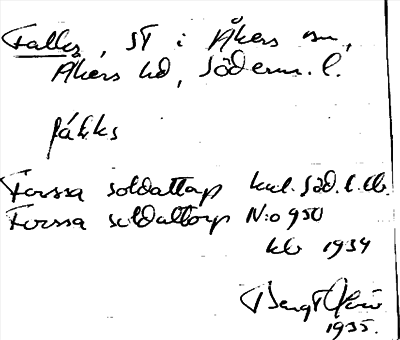 Falks, ST i Åkers sn,
Åkers hd, Söderm. l.
Forssa soldattorp kal. Söd. l.
Forssa soldattorp No 950
1934
Bengt
1935.